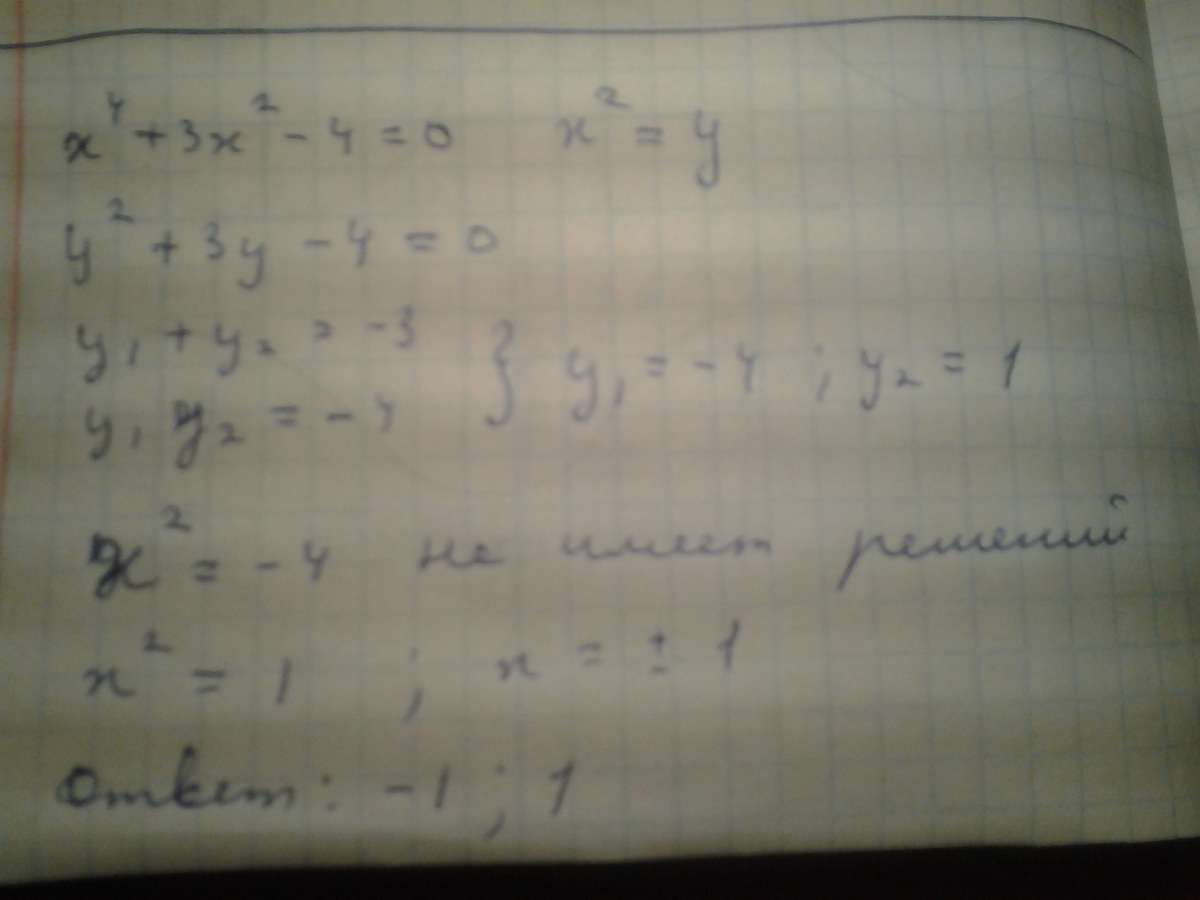 x⁴ + 3x² - 4 = 0 x² = y
y² + 3y - 4 = 0
y₁ + y₂ = -3
y₁ y₂ = -4 } y₁ = -4 ; y₂ = 1
x² = -4 не имеет решений
x² = 1 ; x = ± 1
Ответ: -1 ; 1